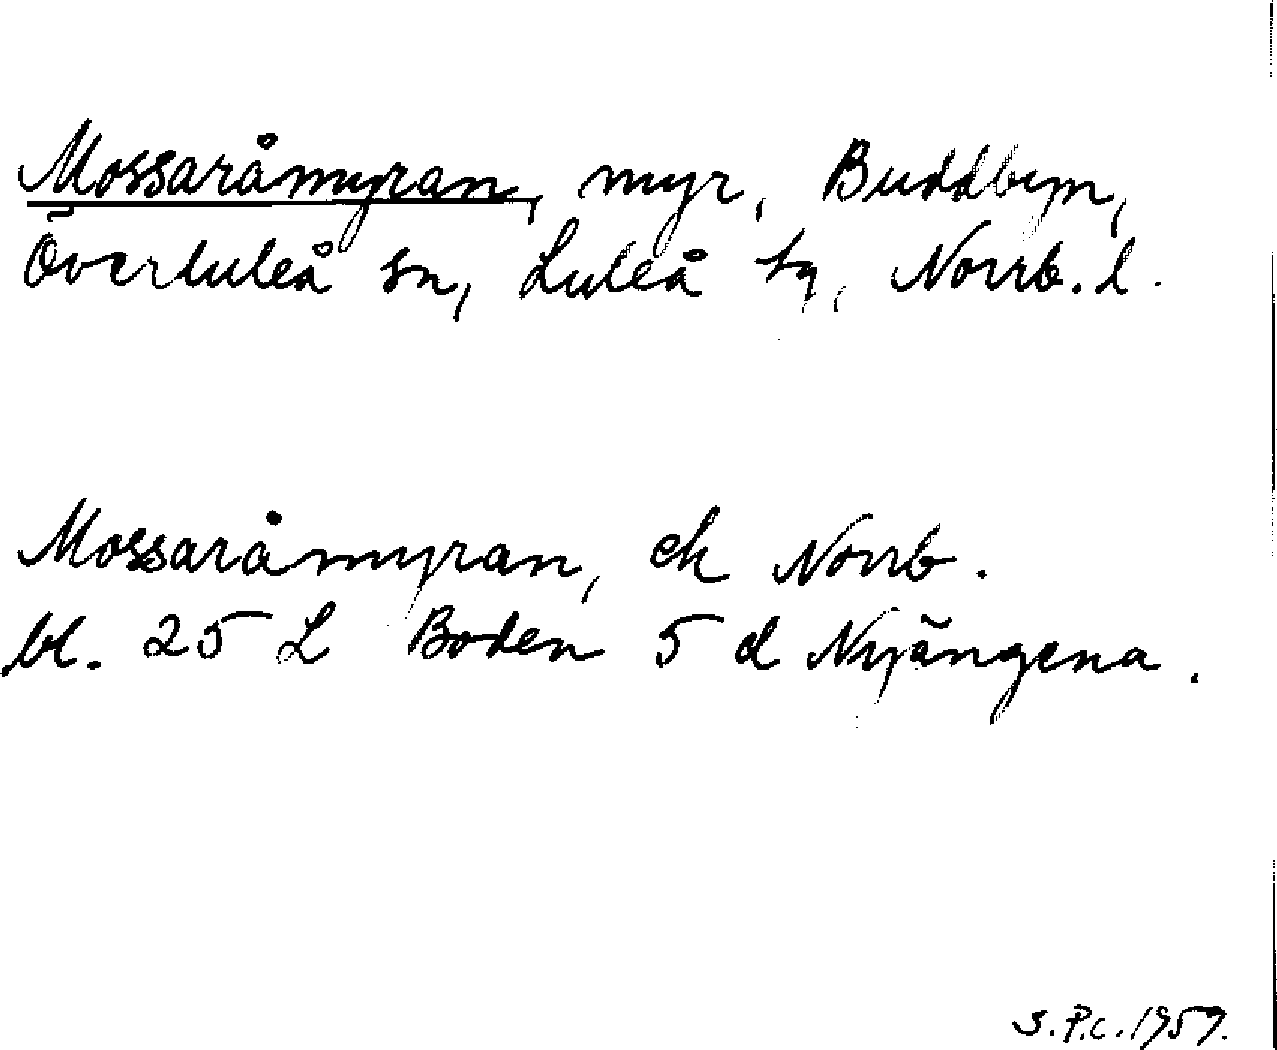 Mossaråmyran, myr, Buddbyn,
Överluleå sn, Luleå tg, Norrb. l.
Mossaråmyran, ek Norrb.
bl. 25 L Boden 5 d Nyängena.
S.P.c. 1959.